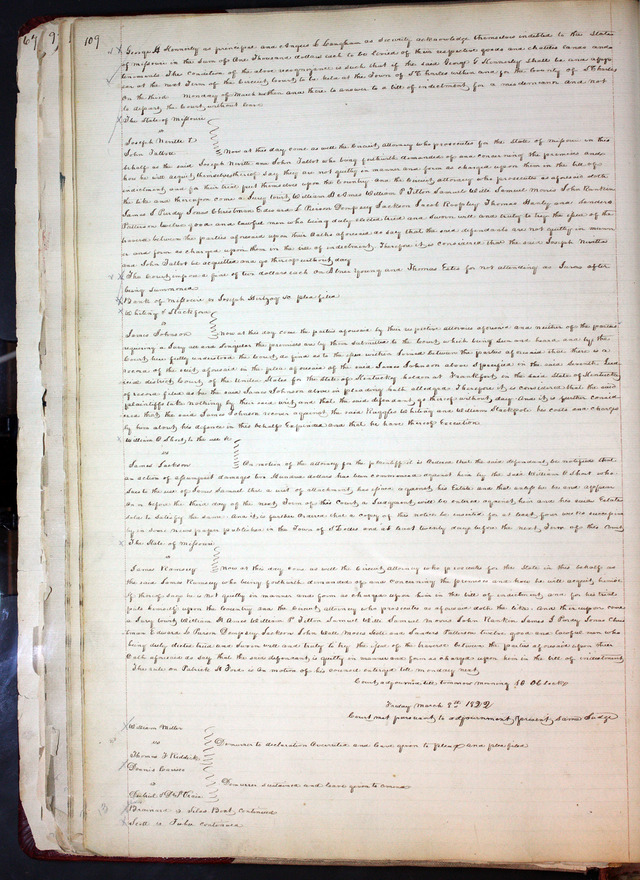 67 9 109
George H Kennerly as principal and Angus L Langham as security acknowledge themselves indebted to the State
of Missouri in the sum of One Thousand dollars each to be levied of their respective goods and chattels lands and
tenements The condition of the above recognizance is such that if the said George H Kennerly shall be and appear
at the next Term of the Circuit Court to be held at the Town of St Charles within and for the County of St Charles
on the third Monday of March next and there to answer to a bill of indictment for a misdemeanor and not
to depart the Court without leave
The State of Missouri
vs
Joseph Neville &
John Talbott Now at this day come as well the Circuit Attorney who prosecutes for the State of Missouri in this
behalf as the said Joseph Neville and John Talbot who being forthwith demanded of and concerning the premises and
how he will acquit themselves thereof say they are not guilty in manner and form as charged upon them in the bill of
indictment and for their trial put themselves upon the Country and the Circuit Attorney who prosecutes as aforesaid doth
the like and thereupon came a Jury towit William St Ames William P Tilton Samuel Wells Samuel Morris John Rankin
James L Purdy Jonas Edward L Pierson Dempsey Jackson Jacob Thomas Hardy and Sanders
Pattison twelve good and lawful men who being duly elected tried and sworn well and truly to try the issue of the
traverse between the parties aforesaid upon their Oaths aforesaid do say that the said defendants are not guilty in manner
and form as charged upon them in the bill of indictment Therefore it is considered that the said Joseph Neville
and John Talbot be acquitted and go thereof without day
The Court impose a fine of two dollars each on Young and Thomas Estes for not attending as Jurors after
being summoned
Bank of Missouri vs Joseph plea filed
Whiting & Stackpole
vs
James Johnson Now at this day come the parties aforesaid by their respective attornies aforesaid and neither of the parties
requiring a Jury all and singular the premises are by them submitted to the Court which being seen and heard and by the
Court here fully understood the Court do find as to the issue within Joined between the parties aforesaid that there is a
record of the suit aforesaid in the plea aforesaid of the said James Johnson above specified in the said Seventh
said district Court of the United States for the State of Kentucky holden at Frankfort in the said State of Kentucky
of record filed as he the said James Johnson above in pleading hath alledged Therefore it is considered that the said
plaintiffs take nothing by their said writ and that the said defendant go thereof without day And it is further consid
ered that the said James Johnson recover against the said Ruggles Whiting and William Stackpole his costs and charges
by him about his defence in this behalf expended and that he have thereof Execution
William O Short to the use &c
vs
James Jackson On motion of the attorney for the plaintiff it is Ordered that the said defendant be notified that
an action of damages two Hundred dollars has been commenced against him by the said William O Short who
Sues to the use of James Samuel that a writ of attachment has issued against his Estate and that unless he be and appear
on or before the third day of the next Term of this Court a Judgment will be entered against him and his said Estate
sold to satisfy the same And it is further ordered that a copy of this notice be inserted for at least four weeks successive
ly in some Newspaper published in the Town of St Louis and at least twenty days before the next Term of this Court
The State of Missouri
vs
James Ramsey Now at this day come as well the Circuit Attorney who prosecutes for the State in this behalf as
the said James Ramsey who being forthwith demanded of and concerning the premises and how he will acquit himself
thereof says he is not guilty in manner and form as charged upon him in the bill of indictment and for his trial
puts himself upon the Country and the Circuit Attorney who prosecutes as aforesaid doth the like And thereupon come
a Jury towit William St Ames William P Tilton Samuel Wells Samuel Morris John Rankin James L Purdy Jonas
Edward L Pierson Dempsey Jackson John Wall Moses Scott and Sanders Pattison twelve good and lawful men who
being duly elected tried and sworn well and truly to try the issue of the traverse between the parties aforesaid upon their
Oath aforesaid do say that the said defendant is guilty in manner and form as charged upon him in the bill of indictment
The rule on Patrick H Ford is on motion of his counsel enlarged till monday next
Court adjourned till tomorrow morning 10 OClock
Friday March 8th 1822
Court met pursuant to adjournment present same Judge
William Miller
vs Demurrer to declaration Overruled and leave given to plead and plea filed
Thomas F Riddick
Dennis
vs Demurrer sustained and leave given to amend
Brainard vs Silas Bent continued
Scott vs Fisher continued